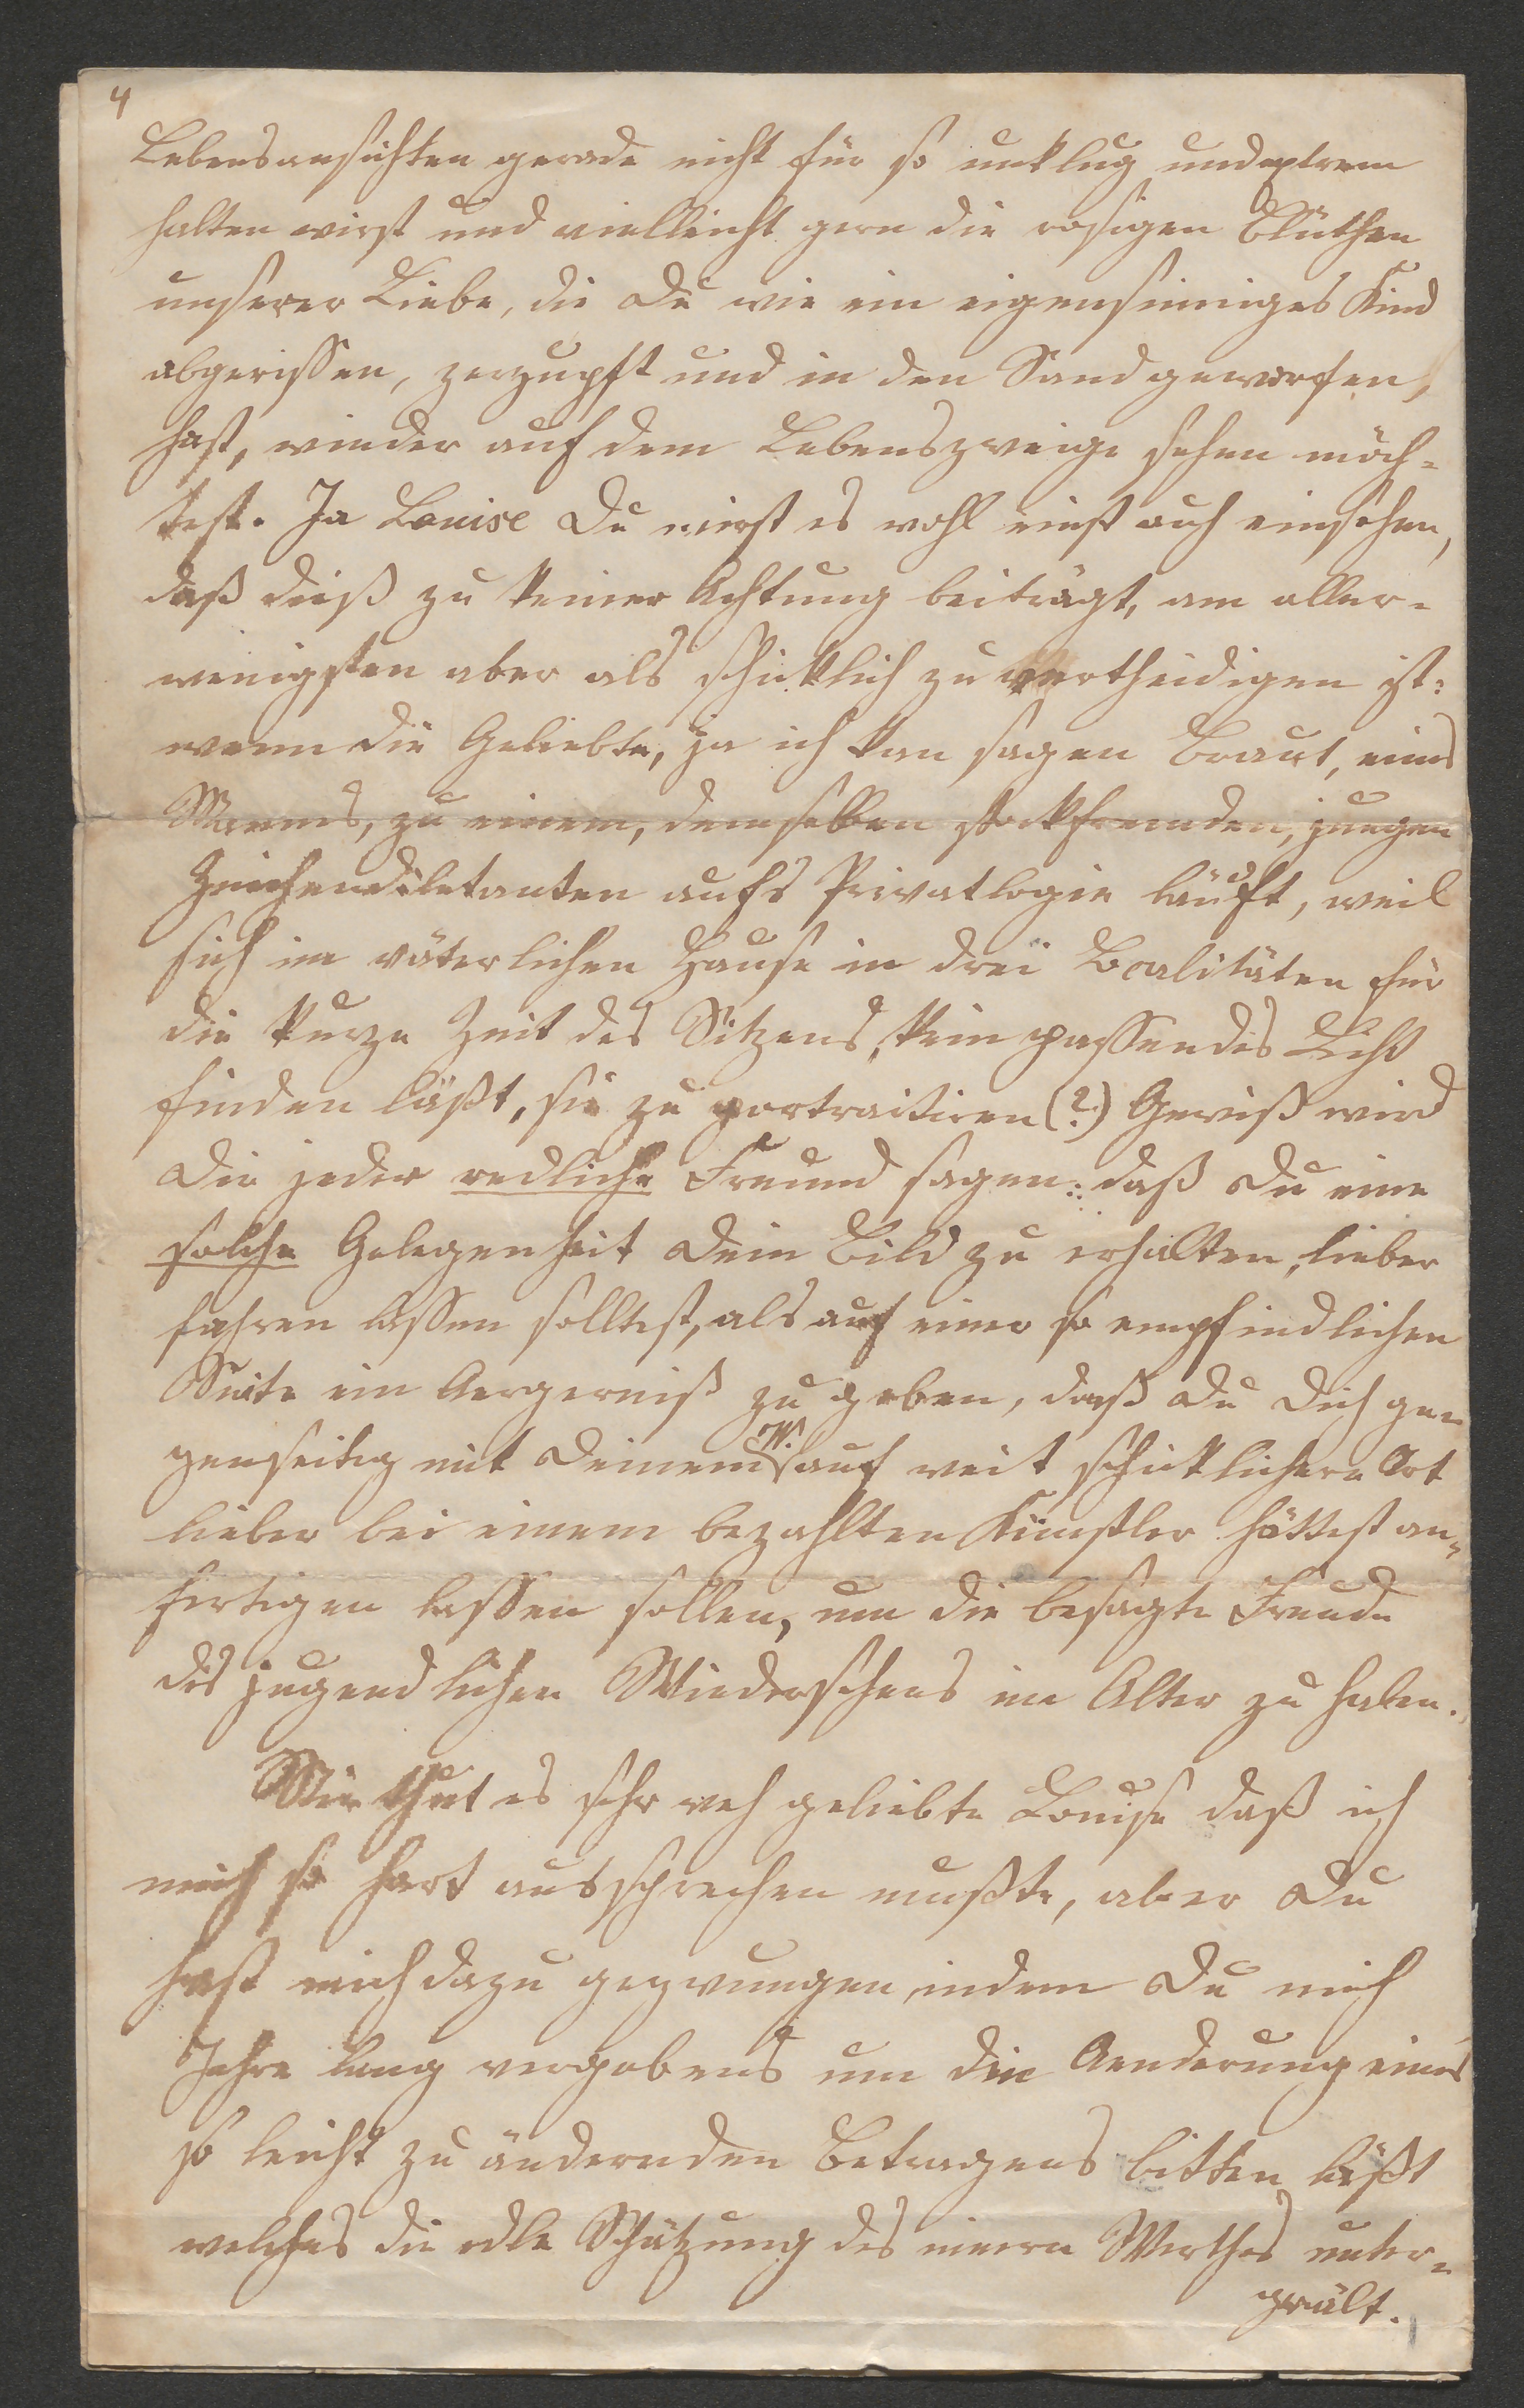 4
Lebensansichten gerade nicht für so unklug und extrem
halten wirst und vielleicht gern die rosigen Blüthen
unserer Liebe, die Du wie ein eigensinniges Kind
abgerissen, zerzupft und in den Sand geworfen,
hast, wieder auf dem Lebenszweige sehen möch-
test. Ja Louise Du wirst es wohl einst auch einsehen,
daß dieß zu keiner Achtung beiträgt, am aller-
wenigsten aber als schicklich zu vertheidigen ist:
wenn die Geliebte, ja ich kan sagen Braut, eines
Mannes, zu einem, demselben stockfremden, jungen
Zeichendiletanten aufs Privatlogie läuft, weil
sich im väterlichen Hause in drei Localitäten für
die kurze Zeit des Sitzens, kein passendes Licht
finden läßt, sie zu portraitiren (?) Gewiß wird
Dir jeder redliche Freund sagen: daß Du eine
solche Gelegenheit Dein Bild zu erhalten, lieber
fahren lassen solltest, als auf einer so empfindlichen
Seite ein Aergerniß zu geben, daß Du Dich ge-
genseitig mit Deinem W. auf weit schicklichere Art
lieber bei einem bezahlten Künstler hättest an-
fertigen lassen sollen, um die besagte Freude
des jugendlichen Wiedersehens im Alter zu haben.
Mir thut es sehr weh geliebte Louise daß ich
mich so hart aussprechen mußte, aber Du
hast mich dazu gezwungen, indem Du mich
Jahre lang vergebens um die Aenderung eines
so leicht zu ändernden Betragens bitten läßt
welches die edle Schätzung des innern Werthes unter-
gräbt.